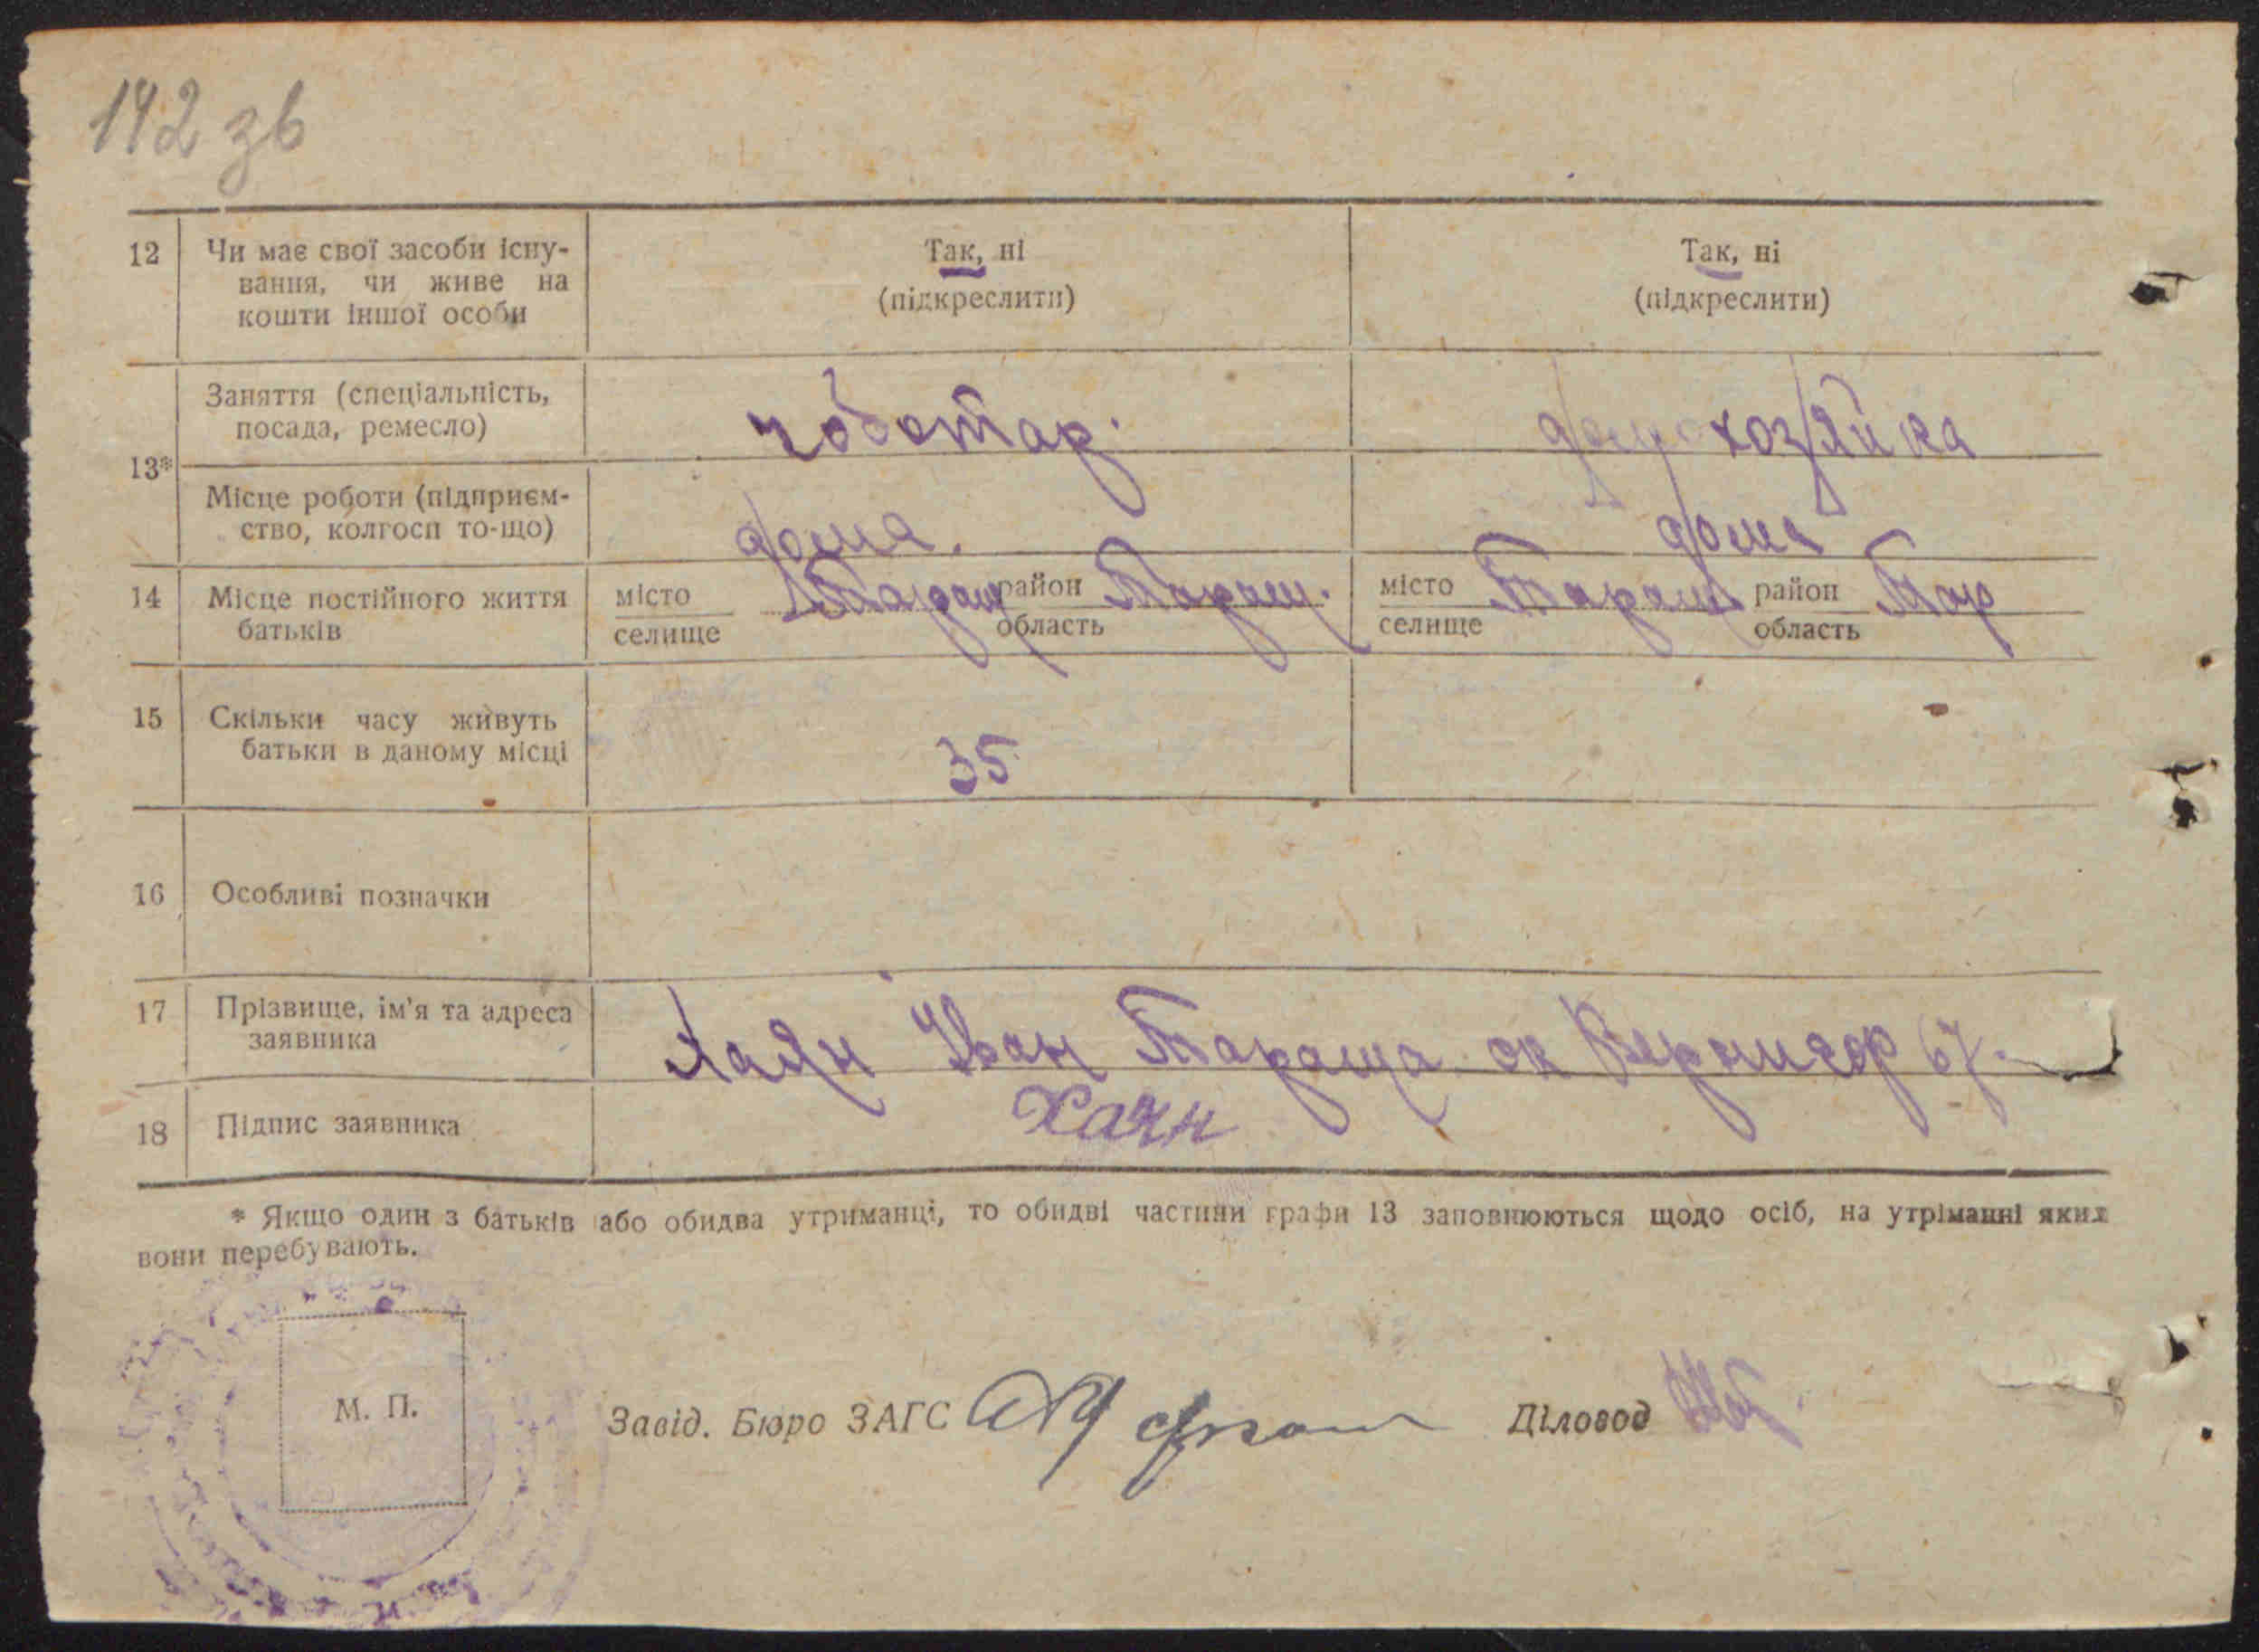 142 зв
12 Чи має свої засоби існу-
вання, чи живе на
кошти іншої особи
Так, ні
(підкреслити)
Так, ні
(підкреслити)
13*
Заняття (спеціальність,
посада, ремесло)
чоботар.
домохозяйка
Місце роботи (підприєм-
ство, колгосп то-що)
дома.
дома
14 Місце постійного життя
батьків
місто
селище
Таращ
район
область
Таращ.
місто
селище
Таращ
район
область
Тар
15 Скільки часу живуть
батьки в даному місці
35
16 Особливі позначки
17 Прізвище, ім'я та адреса
заявника
Іван Тараща 67.
18 Підпис заявника
* Якщо один з батьків або обидва утриманці, то обидві частини графи 13 заповнюються щодо осіб, на утріманні яких
вони перебувають.
М. П.
Завід. Бюро ЗАГС
Діловод